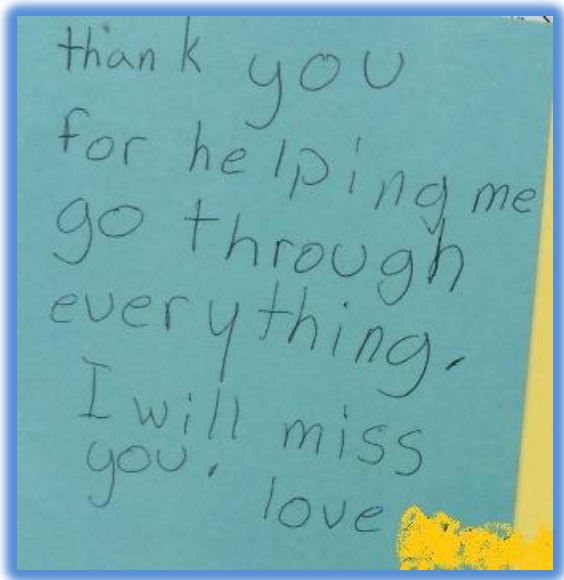 thank you
for helping me
go through
everything.
I will miss
you.
love